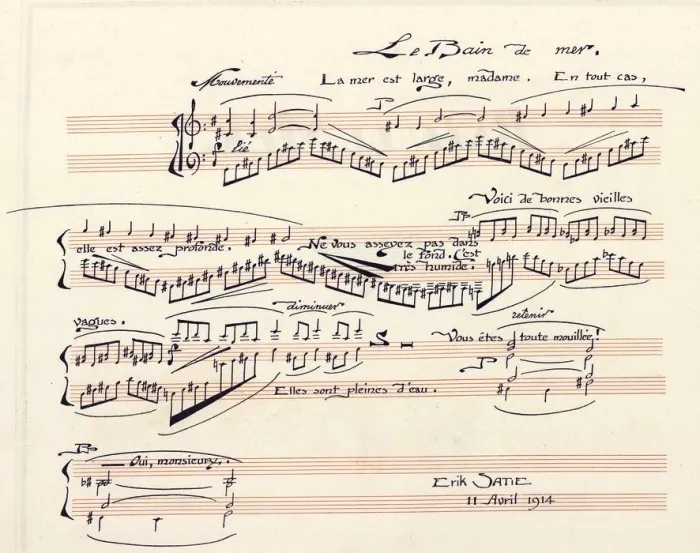 Le Bain de mer.
Mouvementé La mer est large, madame. En tout cas,
P
Lié
Voici de bonnes vieilles
elle est assez profonde. Ne vous asseyez pas dans
le fond. C'est
très humide.
vagues. diminuer retenir
Vous êtes toute mouillée!
P
Elles sont pleines d'eau.
Oui, monsieur.
Erik Satie
11 Avril 1914